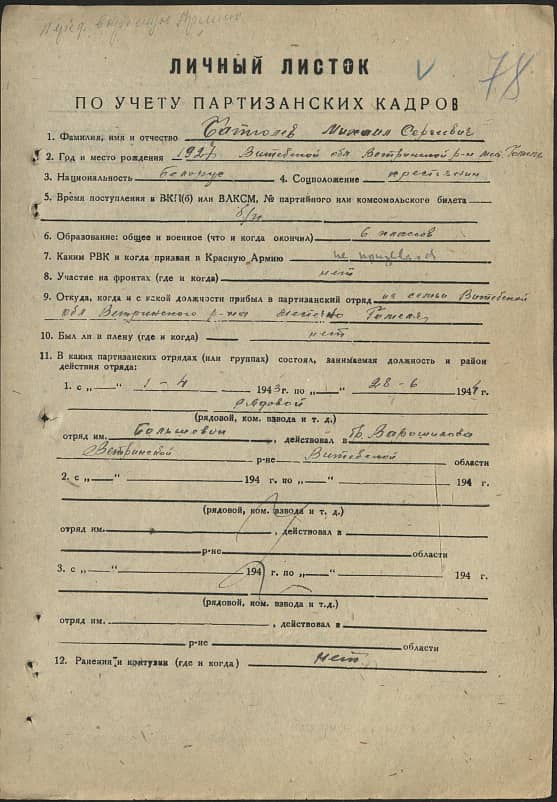 78
ЛИЧНЫЙ ЛИСТОК
ПО УЧЕТУ ПАРТИЗАНСКИХ КАДРОВ
1. Фамилия, имя и отчество Михаил Сергеевич
2. Год и место рождения 1927 Витебской обл Ветринский р-н
3. Национальность белорус 4. Соцположение крестьянин
5. Время поступления в ВКП(б) или ВЛКСМ, № партийного или комсомольского билета
б/п
6. Образование: общее и военное (что и когда окончил) 6 классов
7. Каким РВК и когда призван в Красную Армию не
8. Участие на фронтах (где и когда) нет
9. Откуда, когда и с какой должности прибыл в партизанский отряд из семьи Витебской
обл Ветринского р-на
10. Был ли в плену (где и когда) нет
11. В каких партизанских отрядах (или группах) состоял, занимаемая должность и район
действия отряда:
1. с „—“ 1-4 1943 г. по „—“ 28-6 1944 г.
рядовой
(рядовой, ком. взвода и т. д.)
отряд им. Большевик, действовал в бр. Варошилова
Ветринской р-не Витебской области
2. с „—“ 194 г. по „—“ 194 г.
(рядовой, ком. взвода и т. д.)
отряд им., действовал в
р-не области
3. с „—“ 194 г. по „—“ 194 г.
(рядовой, ком. взвода и т.д.)
отряд им., действовал в
р-не области
12. Ранения и контузии (где и когда) нет